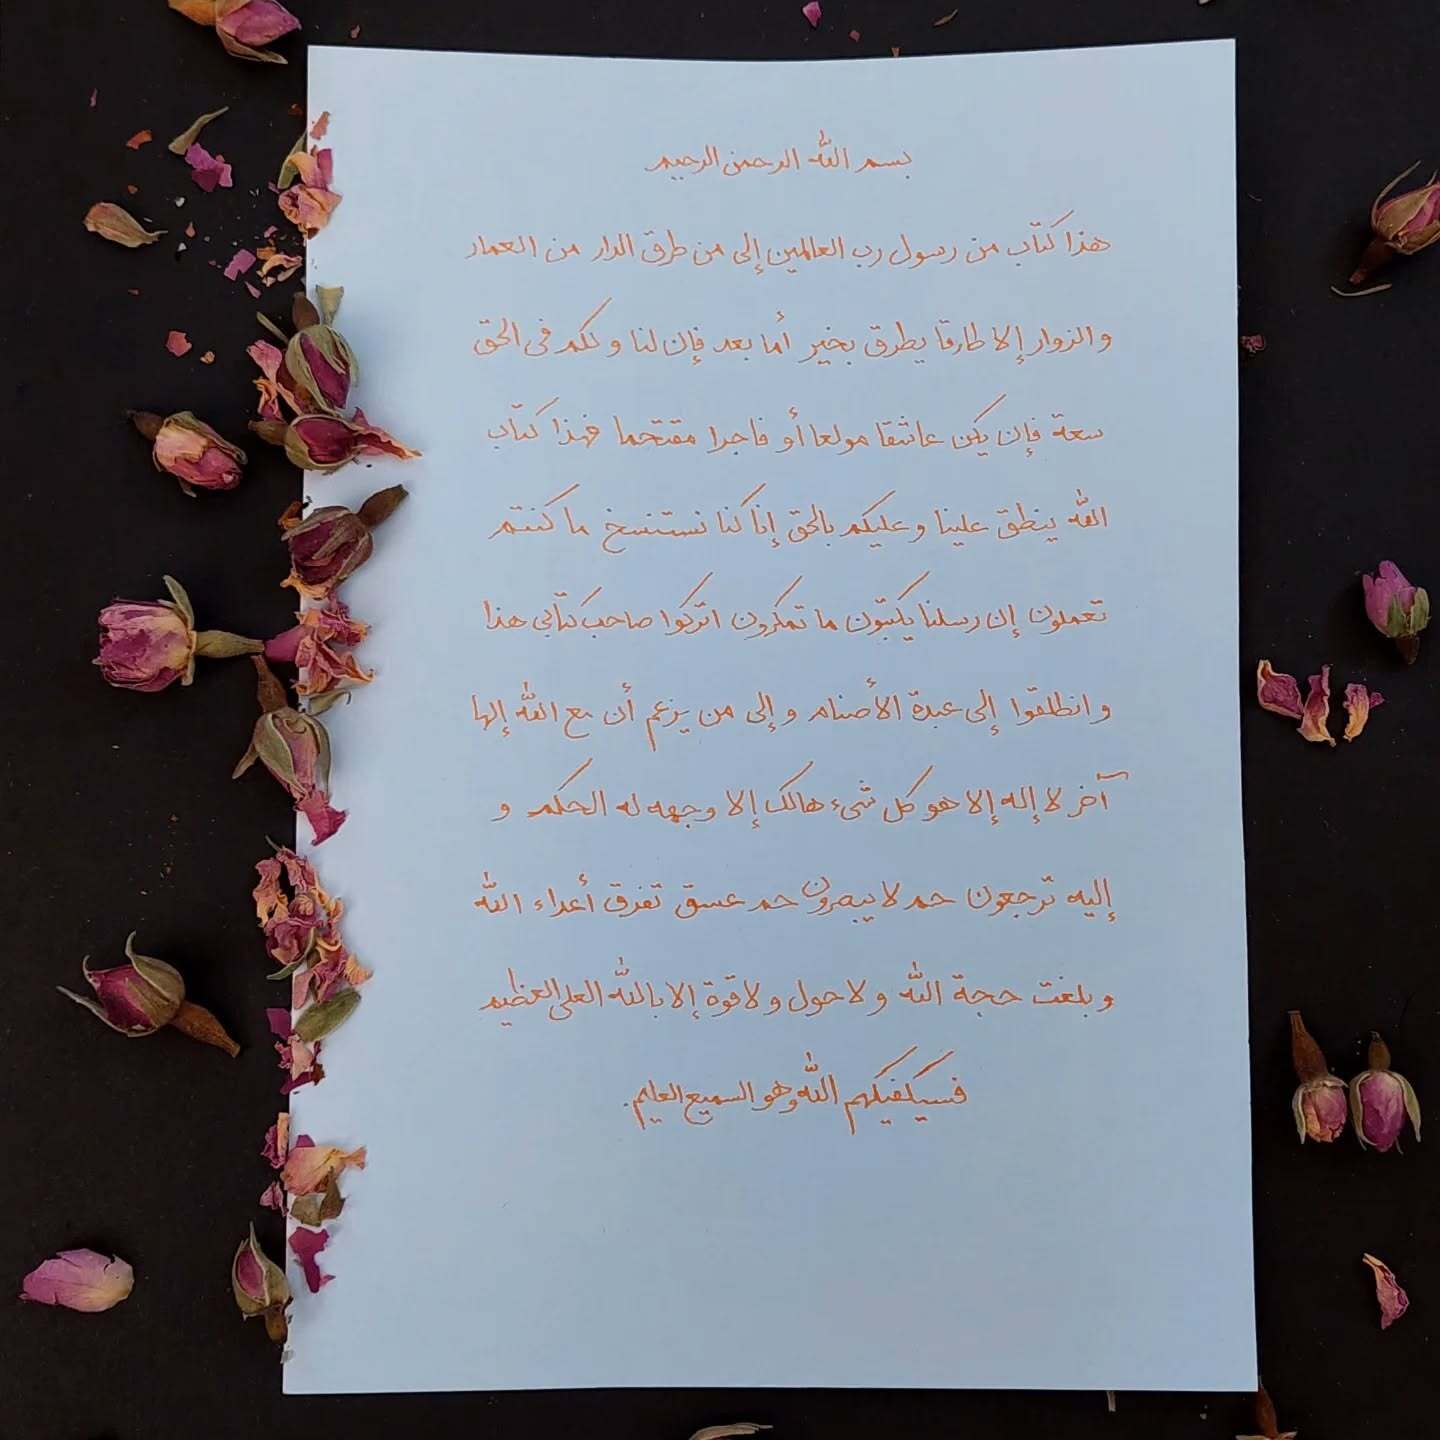 بسم الله الرحمن الرحيم
هذا كتاب من رسول رب العالمين إلى من طرق الدار من العمار
والزوار إلا طارقا يطرق بخير أما بعد فإن لنا ولكم في الحق
سعة فإن يكن عاشقا مولعا أو فاجرا مقتحما فهذا كتاب
الله ينطق علينا وعليكم بالحق إنا كنا نستنسخ ما كنتم
تعملون إن رسلنا يكتبون ما تمكرون اتركوا صاحب كتابي هذا
وانطلقوا إلى عبدة الأصنام وإلى من يزعم أن مع الله إلها
آخر لا إله إلا هو كل شيء هالك إلا وجهه له الحكم و
إليه ترجعون حم لا يبصرون حم عسق تفرق أعداء الله
وبلغت حجة الله ولا حول ولا قوة إلا بالله العلي العظيم
فسيكفيكهم الله وهو السميع العليم.